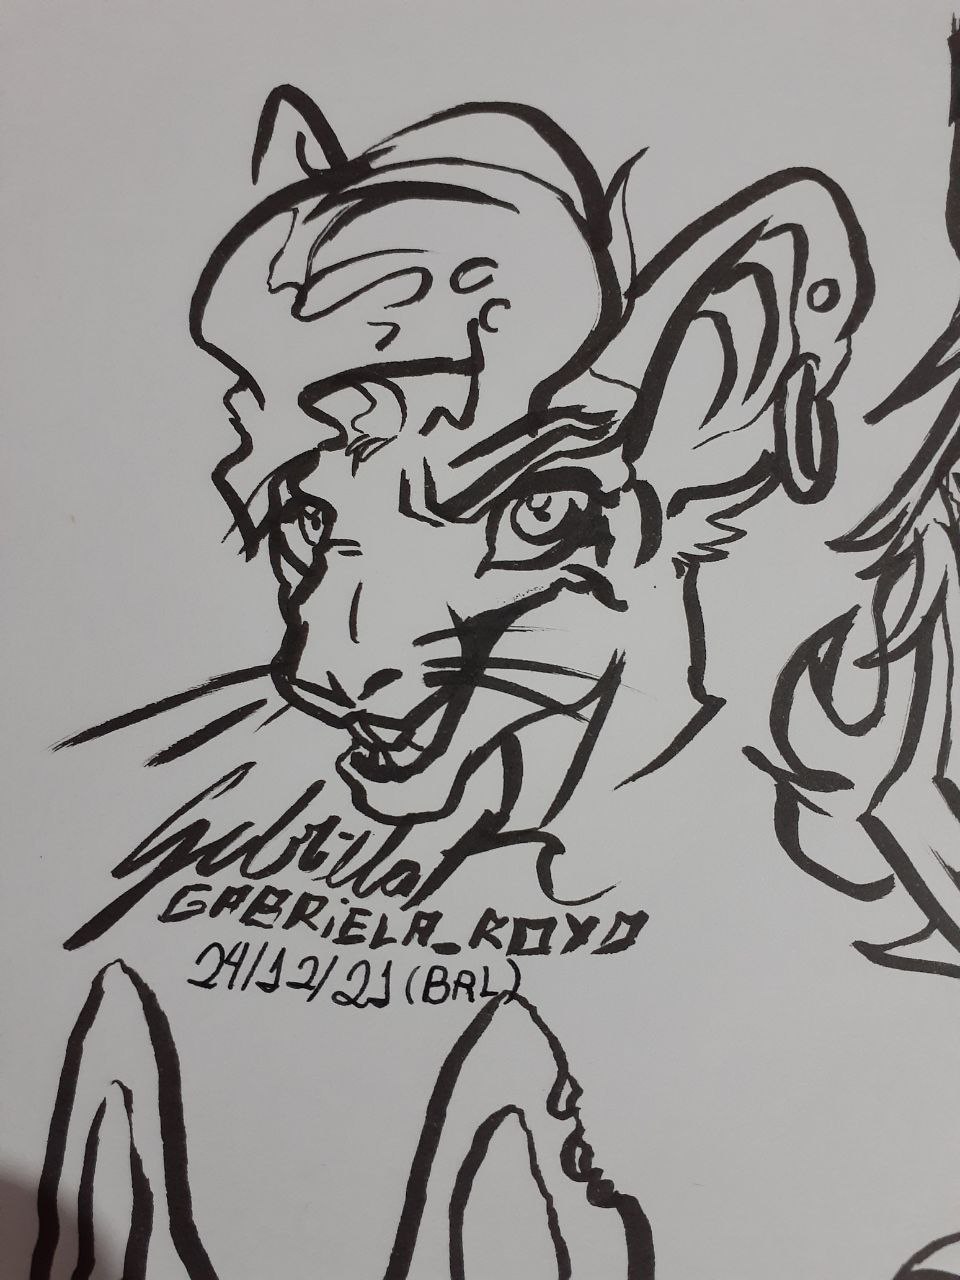 Gabriela
GABRiELA_ROYO
24/12/21 (BRL)